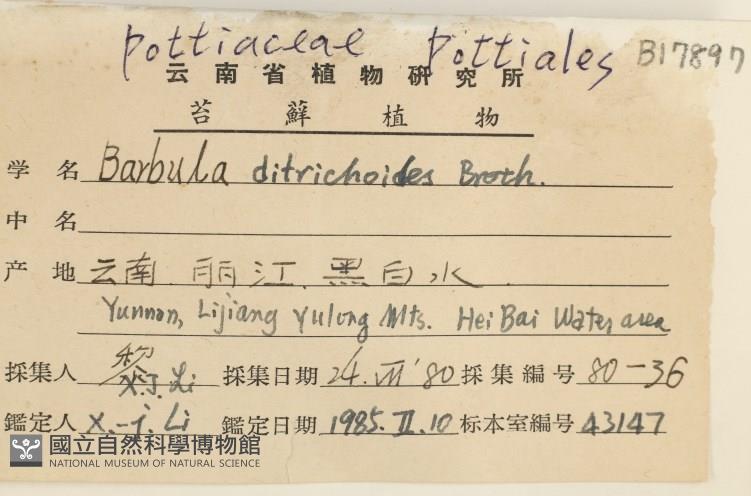 Pottiaceae Pottiales B17897
云南省植物研究所
苔藓植物
学名 Barbula ditrichoides Broth.
中名
产地 云南.丽江.黑白水.
Yunnan, Lijiang Yulong Mts. Hei Bai Water area
採集人 黎 X.J. Li 採集日期 24.VII'80 採集编号 80-36
鑑定人 X.-J. Li 鑑定日期 1985.II.10 标本室编号 43147
國立自然科學博物館
NATIONAL MUSEUM OF NATURAL SCIENCE